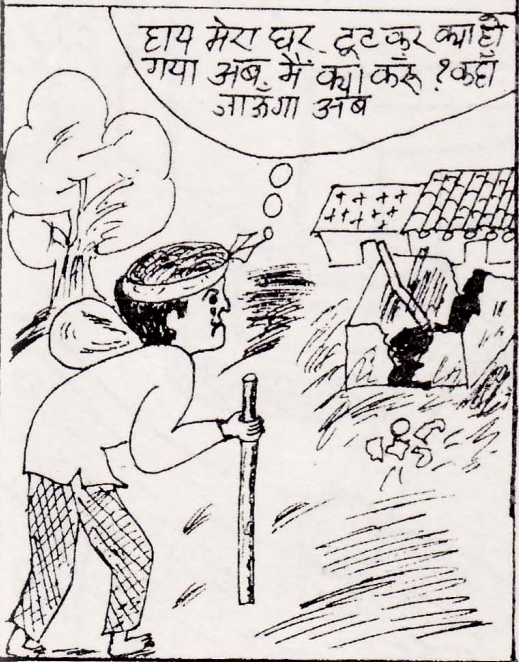 हाय मेरा घर टूट कर क्या हो
गया अब मैं क्या करूँ ? कहाँ
जाऊँगा अब